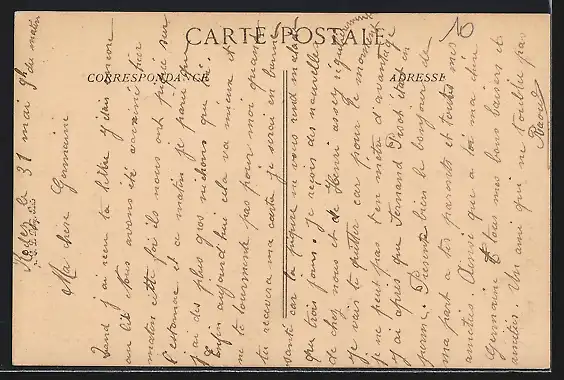 CARTE POSTALE
CORRESPONDANCE
ADRESSE
10
Rodez le 31 mai 9h du matin
Ma chère Germaine
j'ai reçu ta lettre j'étais encore
au lit Nous avons été vaccinés hier
matin cette fois ils nous ont piqué sur
l'estomac et ce matin je parie que
j'ai des plus gros nichons que toi.
Enfin aujourd'hui cela va mieux et
ne te tourmente pas pour moi quand
tu recevras ma carte je serai en bonne
santé car la piqure ne vous rend malade
que trois jours. Je reçois des nouvelles
de chez nous et de Henri assez régulièrement
Je vais te quitter car pour le moment
je ne peut pas t'en mettre d'avantage
j'ai apris que Fernand était en
perme. Présente bien le bonjour de
ma part a tes parents et toutes mes
amitiés. Ainsi que a toi ma chère
Germaine tous mes bons baisers et
amitiés Un ami qui ne t'oublie pas
Raoul